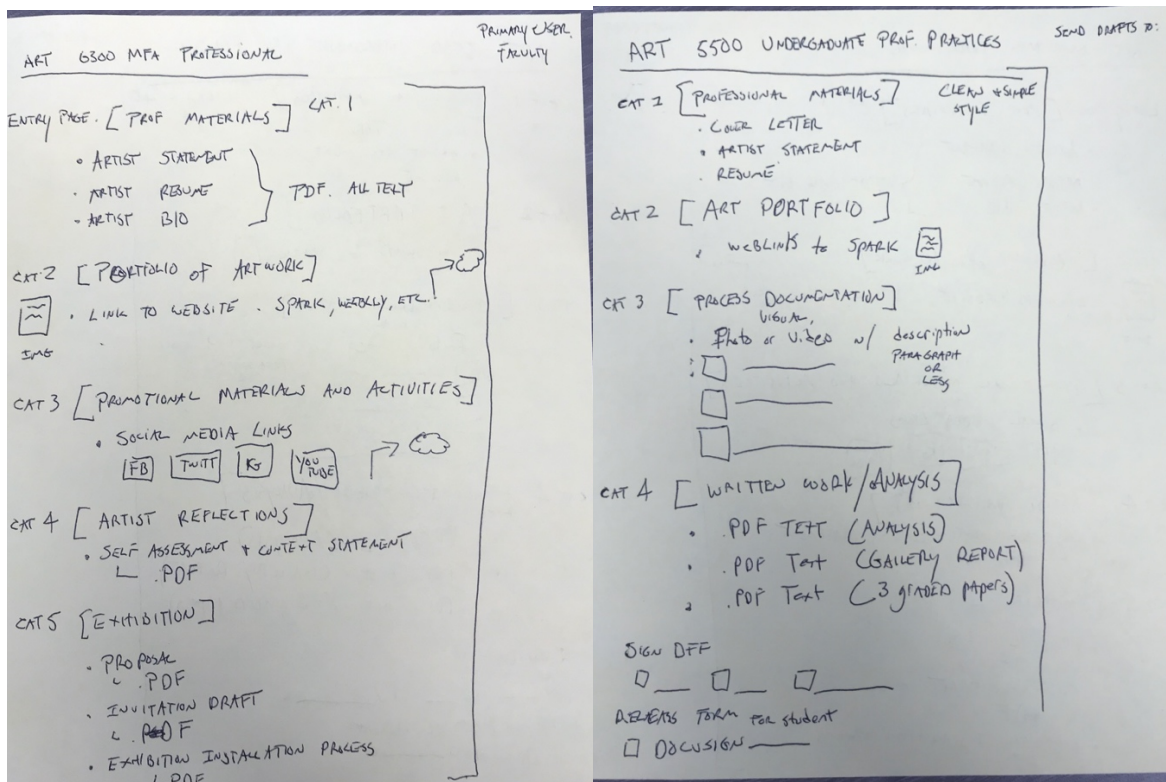 ART 6300 MFA PROFESSIONAL
PRIMARY USER.
FACULTY
ENTRY PAGE. [PROF MATERIALS] CAT. 1
• ARTIST STATEMENT
• ARTIST RESUME
• ARTIST BIO
PDF. ALL TEXT
CAT 2 [PORTFOLIO OF ARTWORK]
• LINK TO WEBSITE. SPARK, WEEBLY, ETC.
IMG
CAT 3 [PROMOTIONAL MATERIALS AND ACTIVITIES]
• SOCIAL MEDIA LINKS
FB TWITT IG YOU TUBE
CAT 4 [ARTIST REFLECTIONS]
• SELF ASSESSMENT + CONTEXT STATEMENT
.PDF
CAT 5 [EXHIBITION]
• PROPOSAL
.PDF
• INVITATION DRAFT
.PDF
• EXHIBITION INSTALLATION PROCESS
.PDF
ART 5500 UNDERGADUATE PROF. PRACTICES
SEND DRAFTS TO:
CAT 1 [PROFESSIONAL MATERIALS]
CLEAN + SIMPLE
STYLE
• COVER LETTER
• ARTIST STATEMENT
. RESUME
CAT 2 [ART PORTFOLIO]
• WEBLINKS to SPARK
IMG
CAT 3 [PROCESS DOCUMENTATION]
VISUAL,
• Photo or Video w/ description
PARAGRAPH
OR
LESS
CAT 4 [WRITTEN WORK/ANALYSIS]
• .PDF TEXT (ANALYSIS)
• .PDF Text (GALLERY REPORT)
• .PDF Text (3 graded papers)
SIGN OFF
FORM for student
DOCUSIGN